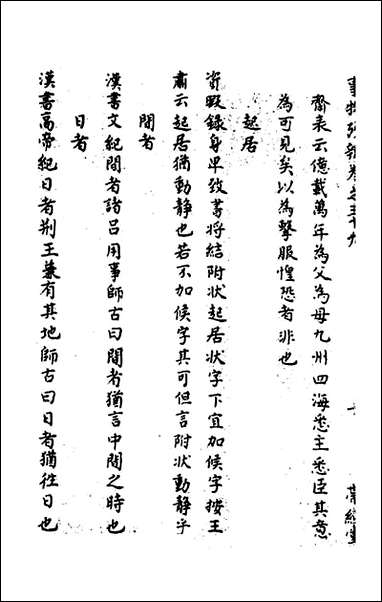 事物紀類卷之三十九
齋表云億載萬年為父為母九州四海悉主悉臣其意
為可見矣以為擊服惶恐者非也
起居
資暇錄身卑致書將結附狀起居狀字下宜加候字按王
肅云起居猶動静也若不加候字其可但言附狀動静乎
間者
漢書文紀間者諸吕用事師古曰間者猶言中間之時也
日者
漢書高帝紀日者荆王兼有其地師古曰日者猶往日也